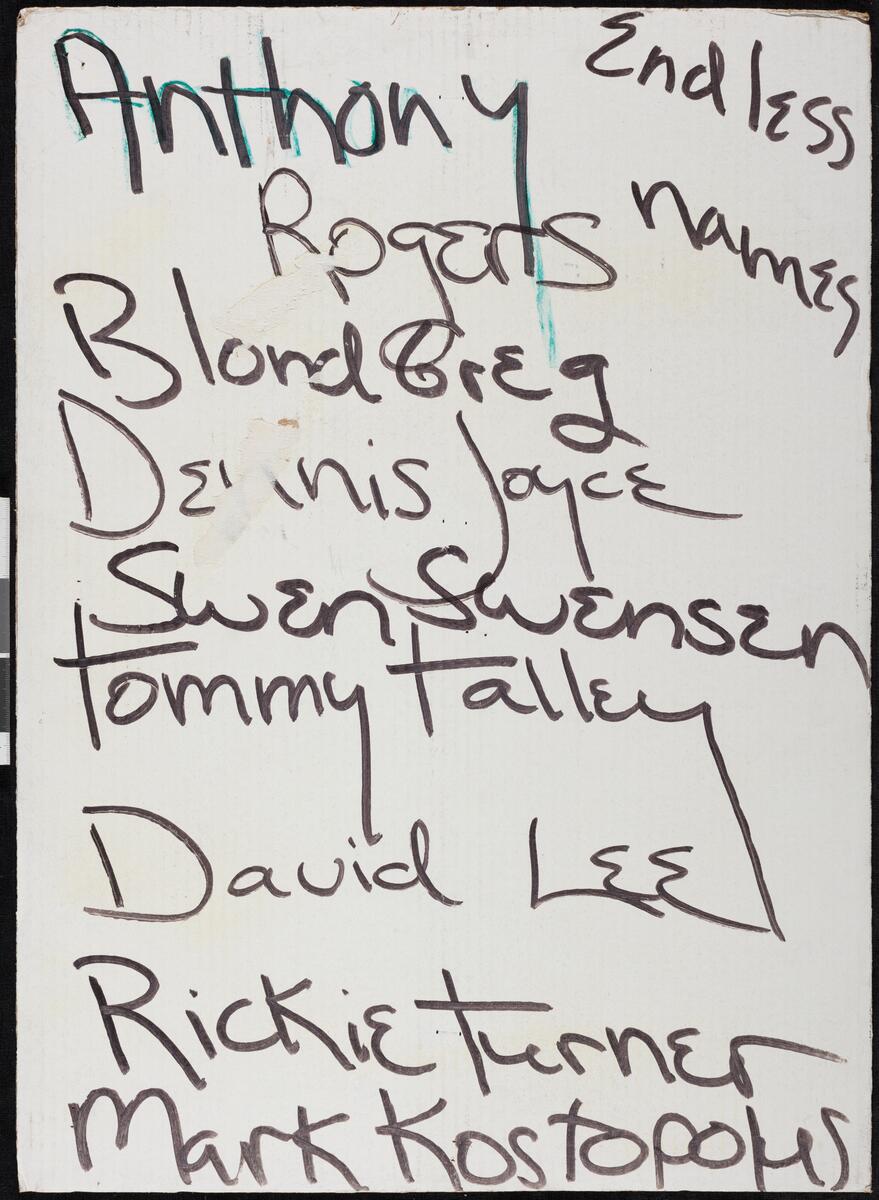 Anthony
Rogers
Endless
names
Blond Greg
Dennis Joyce
Swen Swensen
Tommy Talley
David Lee
Rickie Turner
Mark Kostopolus